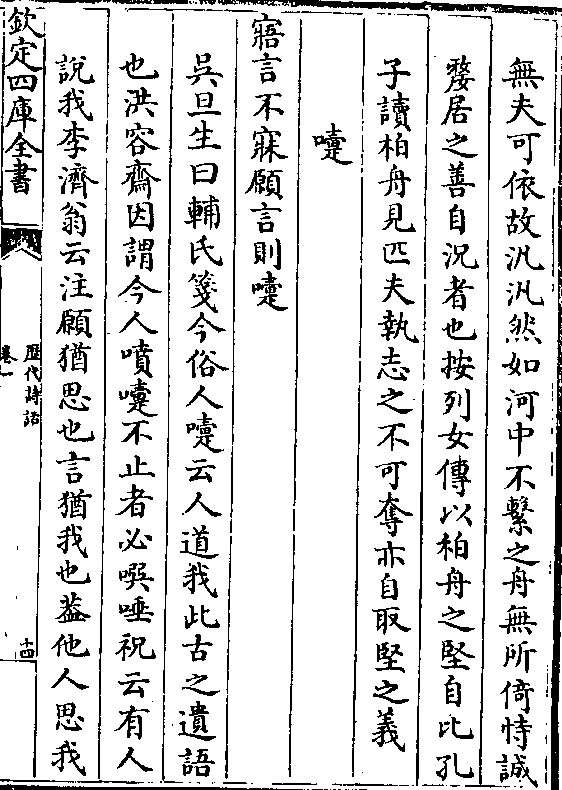 無夫可依故汎汎然如河中不繫之舟無所倚恃誠
嫠居之善自況者也按列女傳以柏舟之堅自比孔
子讀柏舟見匹夫執志之不可奪亦自取堅之義
嚔
寤言不寐願言則嚔
吳旦生曰輔氏箋今俗人嚔云人道我此古之遺語
也洪容齋因謂今人噴嚔不止者必噀唾祝云有人
說我李濟翁云注願猶思也言猶我也葢他人思我
欽定四庫全書
歷代詩話
卷一
十四